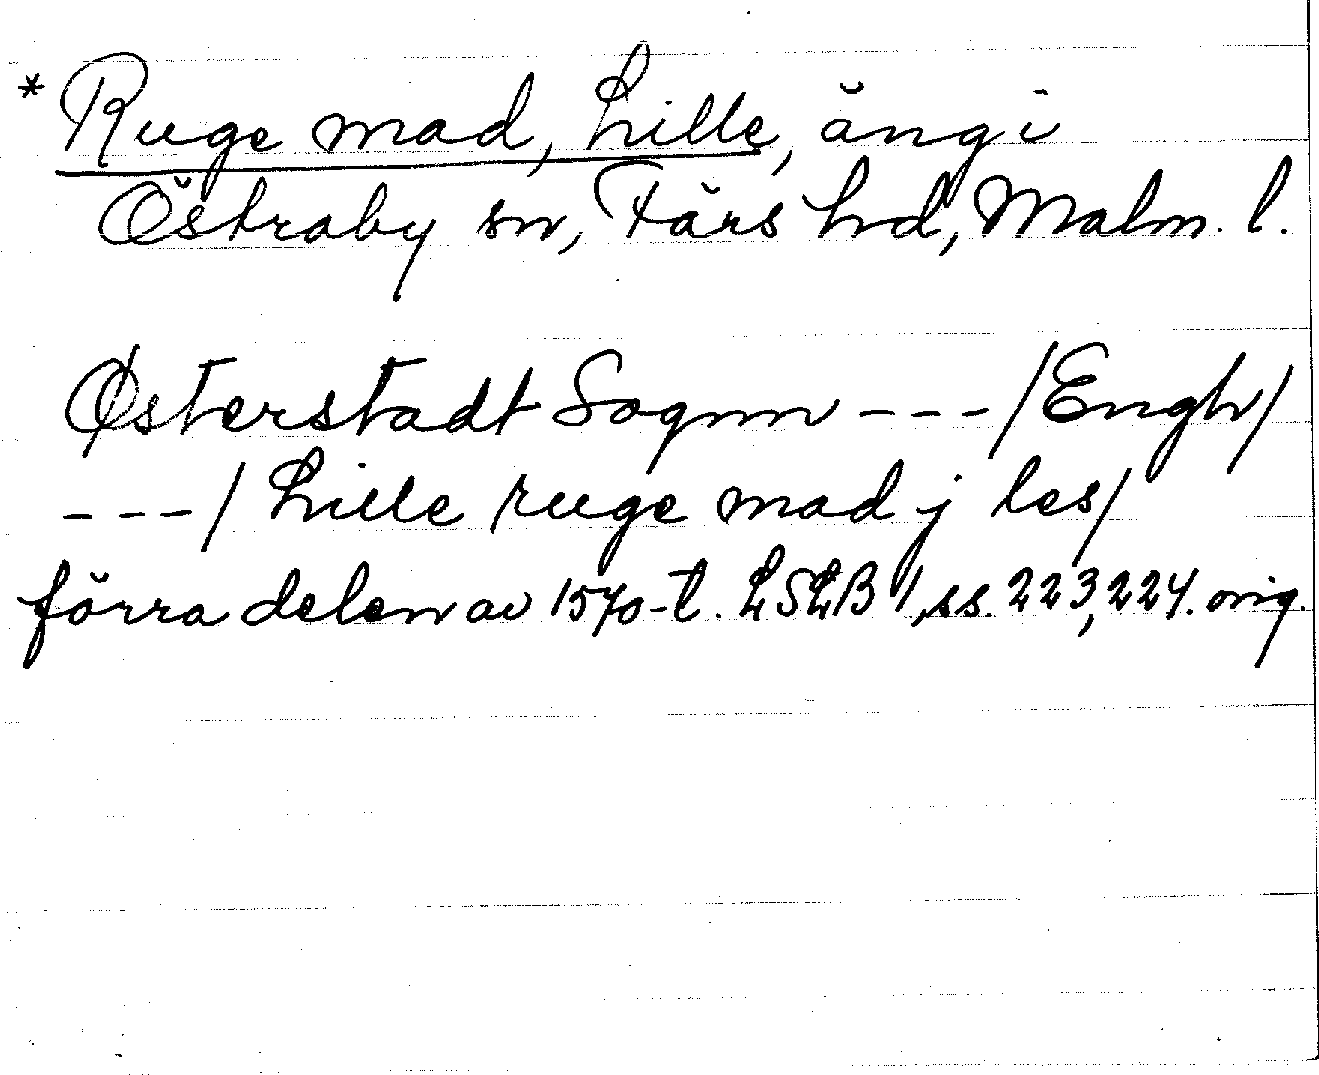 * Ruge mad, Lille, äng i
Östraby sn, Färs hd, Malm. l.
Østerstadt Sognn --- / Engh /
--- / Lille ruge mad j les /
förra delen av 1570-t. LSLB 1, ss. 223, 224. orig.